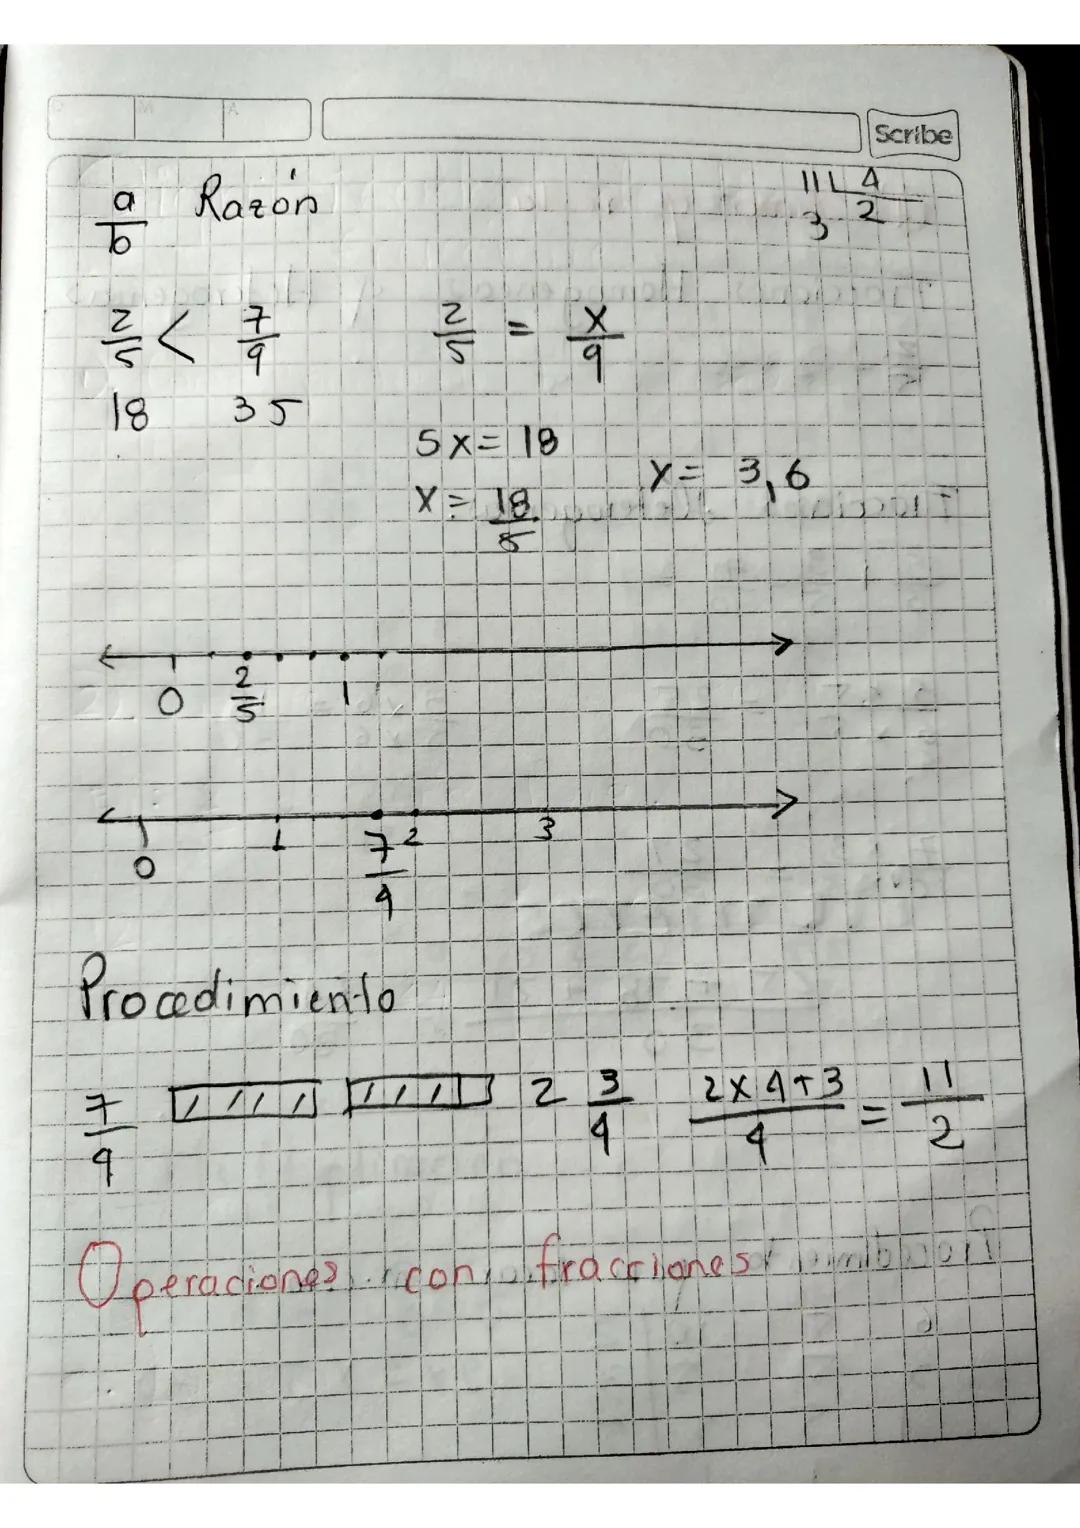 Scribe
a/b Razón
11 4
3 2
2/5 < 7/9
18 35
2/5 = x/9
5x = 18
x = 18/5
x = 3,6
0 2/5 1
0 1 7/4 2 3
Procedimiento
7/4 2 3/4 2x4+3/4 = 11/2
Operaciones con fracciones